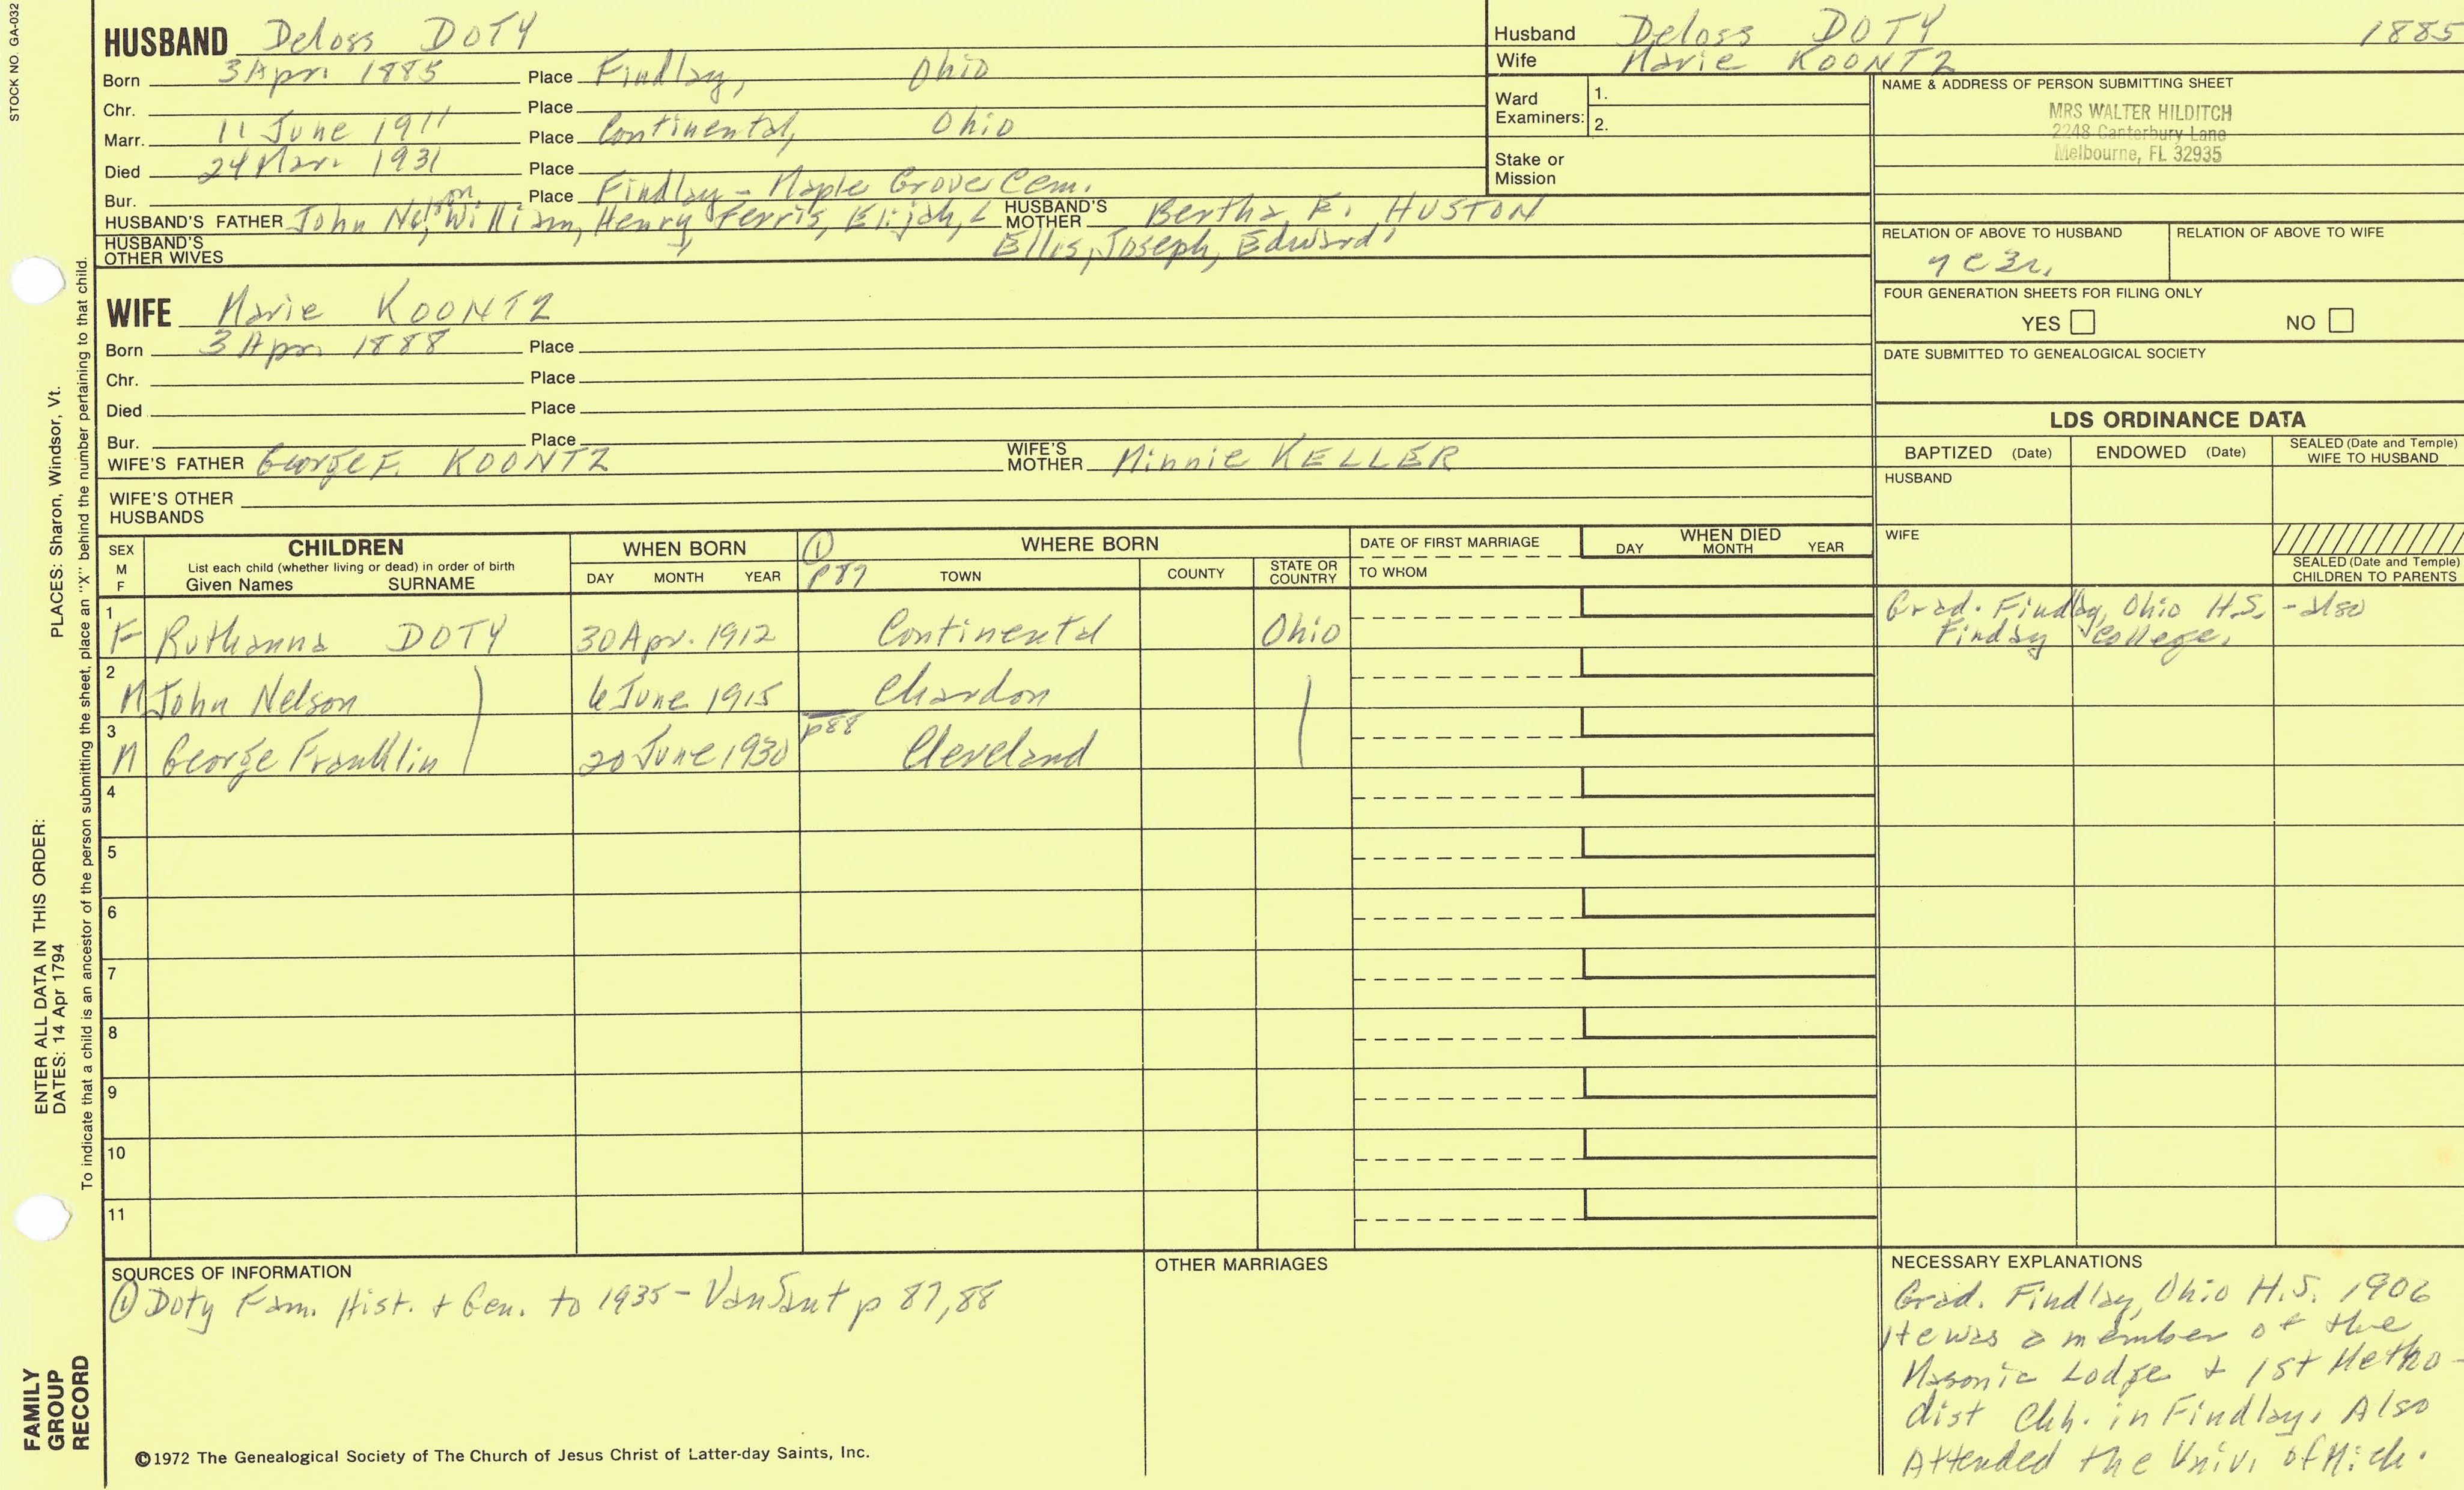 STOCK NO. GA-032
HUSBAND Deloss DOTY
Born 3 Apr. 1885 Place Findlay, Ohio
Chr. Place
Marr. 11 June 1911 Place Continental, Ohio
Died 24 Mar. 1931 Place
Bur. Place Findlay - Maple Grove Cem.
HUSBAND'S FATHER John Nelson, William, Henry, Ferris, Elijah, HUSBAND'S MOTHER Bertha E. HUSTON
Ellis, Joseph, Edward
HUSBAND'S OTHER WIVES
WIFE Marie KOONTZ
Born 3 Apr. 1888 Place
Chr. Place
Died Place
Bur. Place
WIFE'S FATHER George F. KOONTZ WIFE'S MOTHER Minnie KELLER
WIFE'S OTHER HUSBANDS
Husband Deloss DOTY 1885
Wife Marie KOONTZ
Ward Examiners: 1.
2.
Stake or Mission
NAME & ADDRESS OF PERSON SUBMITTING SHEET
MRS WALTER HILDITCH
2248 Canterbury Lane
Melbourne, FL 32935
RELATION OF ABOVE TO HUSBAND RELATION OF ABOVE TO WIFE
FOUR GENERATION SHEETS FOR FILING ONLY
YES NO
DATE SUBMITTED TO GENEALOGICAL SOCIETY
LDS ORDINANCE DATA
BAPTIZED (Date) ENDOWED (Date) SEALED (Date and Temple) WIFE TO HUSBAND
HUSBAND
WIFE
SEALED (Date and Temple) CHILDREN TO PARENTS
SEX M F
CHILDREN
List each child (whether living or dead) in order of birth
Given Names SURNAME
WHEN BORN
DAY MONTH YEAR
① p87
WHERE BORN
TOWN COUNTY STATE OR COUNTRY
DATE OF FIRST MARRIAGE
TO WHOM
WHEN DIED
DAY MONTH YEAR
1 F Ruthanna DOTY 30 Apr. 1912 Continental Ohio Grad. Findlay, Ohio H.S. - also
Findlay College.
2 M John Nelson 6 June 1915 Chardon
3 M George Franklin 20 June 1930 p88 Cleveland
4
5
6
7
8
9
10
11
SOURCES OF INFORMATION
① Doty Fam. Hist. + Gen. to 1935 - VanSant p 87, 88
OTHER MARRIAGES
NECESSARY EXPLANATIONS
Grad. Findlay, Ohio H.S. 1906
He was a member of the
Masonic Lodge + 1st Metho-
dist Chh. in Findlay. Also
Attended the Univ. of Mich.
©1972 The Genealogical Society of The Church of Jesus Christ of Latter-day Saints, Inc.
FAMILY
GROUP
RECORD
ENTER ALL DATA IN THIS ORDER:
DATES: 14 Apr 1794
PLACES: Sharon, Windsor, Vt.
To indicate that a child is an ancestor of the person submitting the sheet, place an "X" behind the number pertaining to that child.